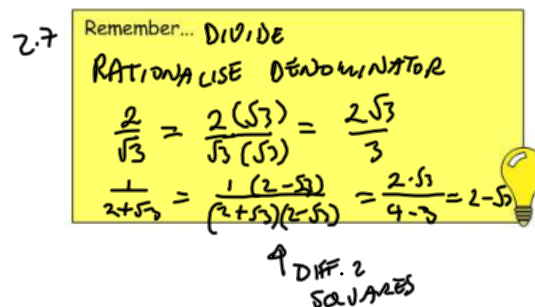 2.7
Remember... DIVIDE
RATIONALISE DENOMINATOR
2/√3 = 2(√3)/√3(√3) = 2√3/3
1/2+√3 = 1(2-√3)/(2+√3)(2-√3) = 2-√3/4-3 = 2-√3
↑ DIFF. 2
SQUARES